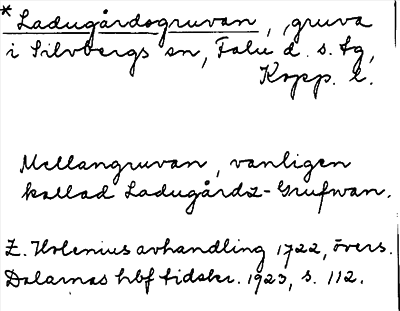 * Ladugårdsgruvan, gruva
i Silvbergs sn, Falu d. s. tg,
Kopp. l.
Mellangruvan, vanligen
kallad Ladugårdz-Grufwan.
Z. Holenius avhandling 1722, övers.
Dalarnas hbf tidskr. 1923, s. 112.